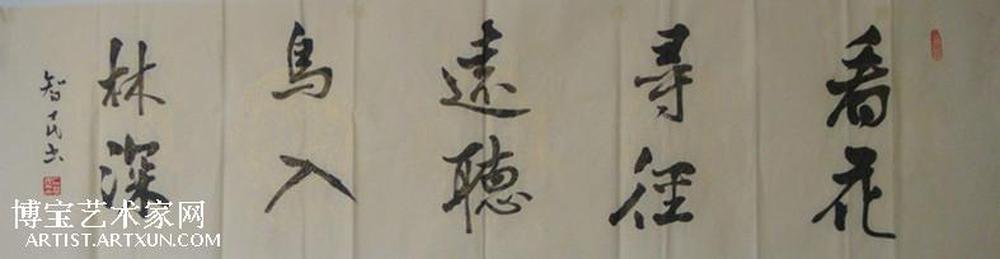 看花
尋径
遠聽
鳥入
林深
智民书
博宝艺术家网
ARTIST.ARTXUN.COM